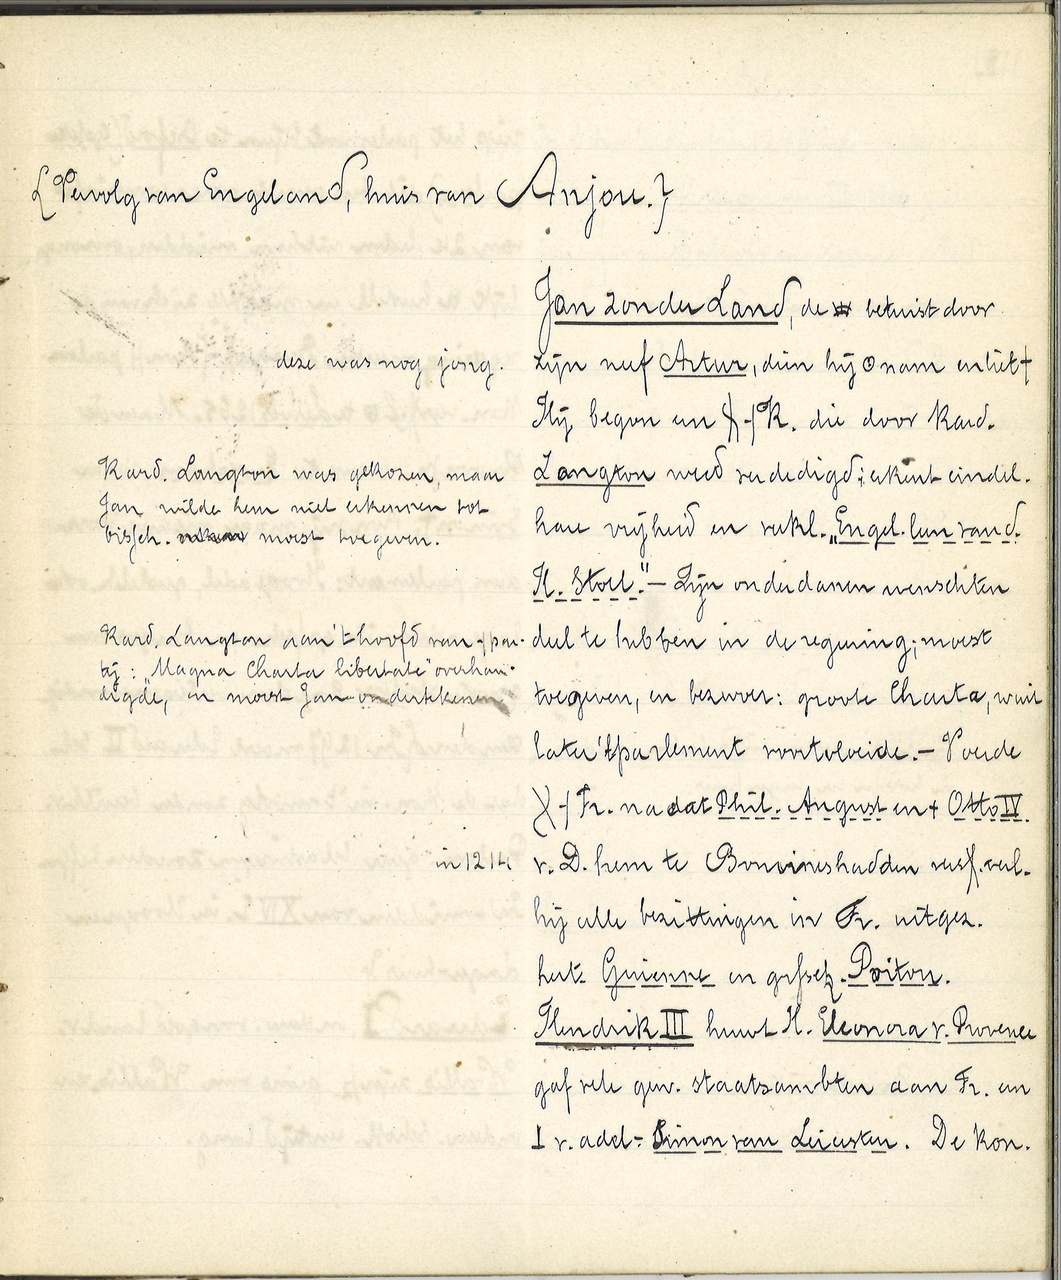 {Vervolg van Engeland, huis van Anjou.}
Jan zonder Land, de betwist door
deze was nog jong.
zijn neef Artur, dien hij nam en liet †
Hij begon een K. die door Kard.
Kard. Langton was gekozen, maar
Jan wilde hem niet erkennen tot
bissch. moest toegeven.
Langton werd verdedigd; erkent eindel.
haue vrijheid en verkl. „Engel. leen van d.
H. Stoel." — Zijn onderdanen wenschten
Kard. Langton aan 't hoofd van par-
tij: „Magna Charta libertate" overhan-
digde, en moest Jan onderteekenen
deel te hebben in de regeering; moest
toegeven, en bezweer: groote Charta, waaruit
later 't parlement voortvloeide. — Voerde
Fr. nadat Phil. August en + Otto IV
in 1214
v. D. hem te Bouvines hadden versl. verl.
hij alle bezittingen in Fr. uitgez.
hert. Guienne en grfsch. Poitou.
Hendrik III huwt H. Eleonora v. Provence
gaf vele gew. staatsambten aan Fr. en
⊥ v. adel = Simon van Leicester. De kon.